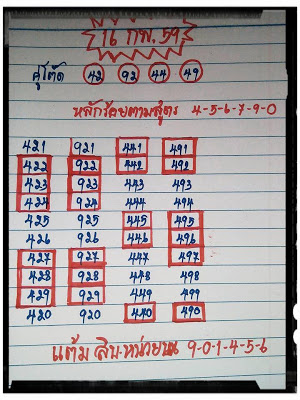 16 ก.พ. 59
คู่โต๊ด 42 92 44 49
หลักร้อยตามสูตร 4-5-6-7-9-0
421 921 441 491
422 922 442 492
423 923 443 493
424 924 444 494
425 925 445 495
426 926 446 496
427 927 447 497
428 928 448 498
429 929 449 499
420 920 440 490
แต้ม สิบ-หน่วยบน 9-0-1-4-5-6